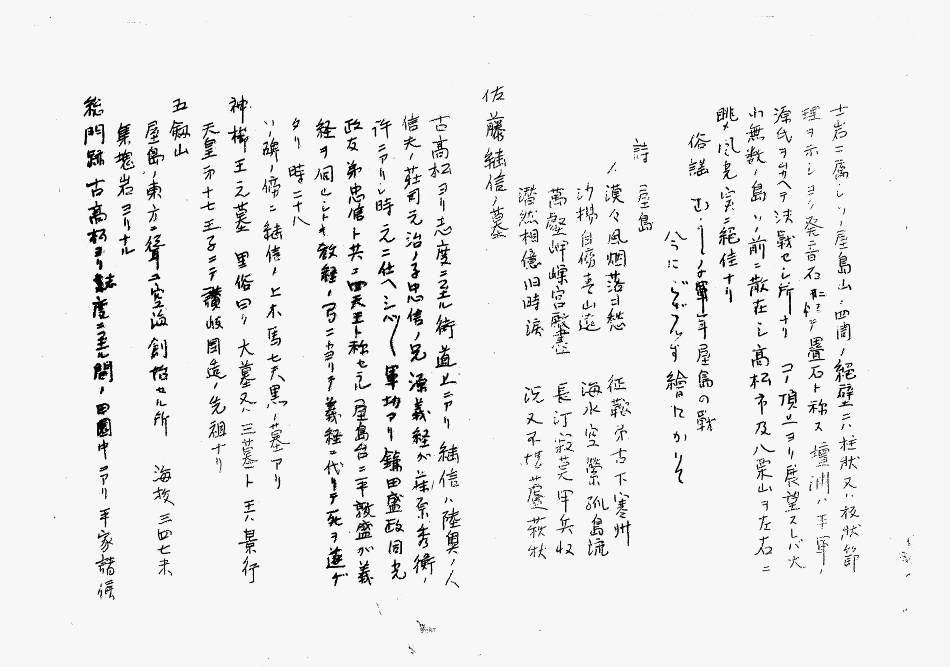 士岩ニ属シソノ屋島山ノ四周ノ絶壁ニハ柱状又ハ板状節
理ヲ示シヨク発音石 畳石ト称ス 壇浦ハ平軍ノ
源氏ヲ ヘテ決戦セシ所ナリ コノ頂上ヨリ展望スレバ大
小無数ノ島ソノ前ニ散在シ高松市及八栗山ヲ左右ニ
眺メ風光実ニ絶佳ナリ
俗謡 むかし 軍平屋島の戰
今に ず繪にかりそ
詩 屋島
漠々風烟落日愁 征鞍 古下寒州
沙 自傍青山遠 海水空縈孤島流
萬壑岬嶸宮殿盡 長汀寂莫甲兵收
潜然相億旧時涙 况又不堪蘆萩秋
佐藤継信ノ墓
古高松ヨリ志度ニ至ル街道上ニアリ 継信ハ陸奥ノ人
信夫ノ莊司元治ノ子忠信ノ兄 源義経ガ藤原秀衡ノ
許ニアリシ時元ニ仕ヘシバ〱軍功アリ 鎌田盛政同光
政及弟忠信ト共ニ四天王ト称セラル 屋島合ニ平教盛ガ義
経ヲ 同セントキ教経ノ弓ニカヨリテ義経ニ代リテ死ヲ遂ゲ
タリ 時二十八
ソノ碑ノ傍ニ継信ノ上木馬七天黒ノ墓アリ
神櫛王之墓 里俗曰ク大墓又ハ三墓ト 王ハ景行
天皇第十七王子ニテ讃岐国造ノ先祖ナリ
五劔山
屋島ノ東方ニ聳ユ空海創始セル所 海拔三四七米
集塊岩ヨリナル
総門跡 古高松ヨリ志度ニ至ル間ノ田圃中ニアリ 平家諸